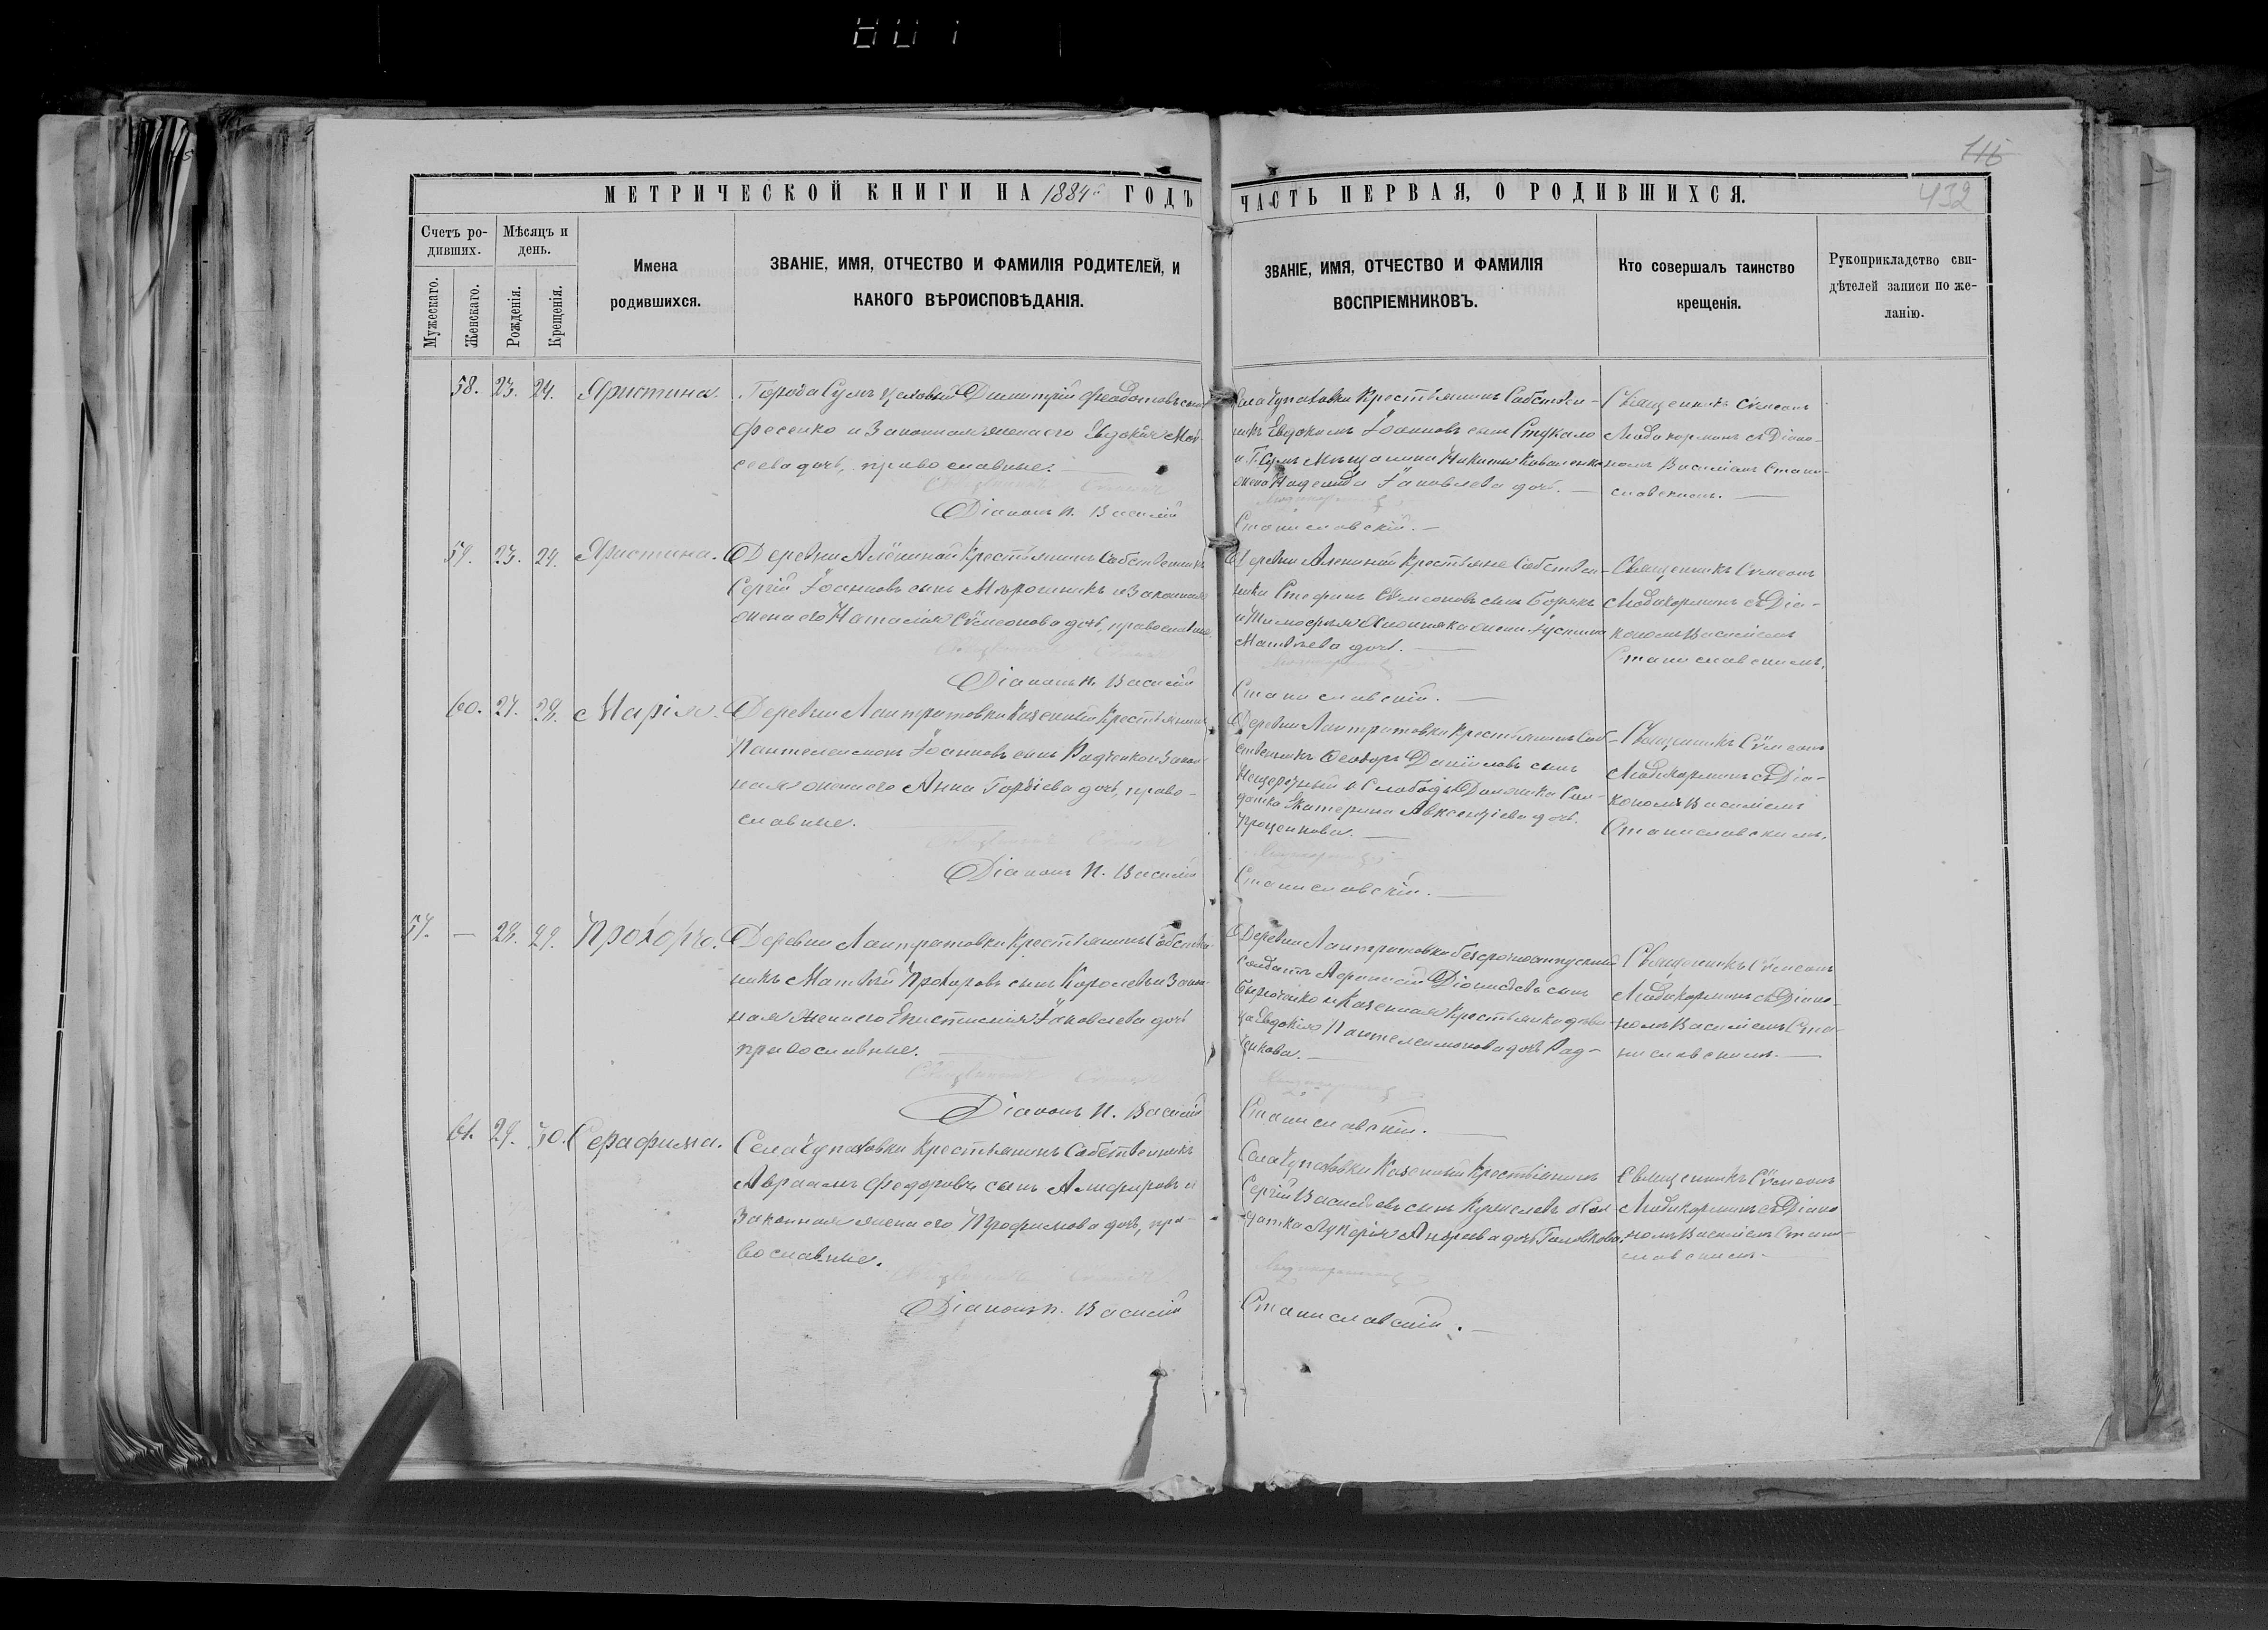 116
432
МЕТРИЧЕСКОЙ КНИГИ НА 1884й ГОДЪ
ЧАСТЬ ПЕРВАЯ, О РОДИВШИХСЯ.
Счетъ ро-
дивших.
Мужескаго.
Женскаго.
Мѣсяцъ и
день.
Рожденія.
Крещенія.
Имена
родившихся.
ЗВАНІЕ, ИМЯ, ОТЧЕСТВО И ФАМИЛІЯ РОДИТЕЛЕЙ, И
КАКОГО ВѢРОИСПОВѢДАНІЯ.
ЗВАНІЕ, ИМЯ, ОТЧЕСТВО И ФАМИЛІЯ
ВОСПРІЕМНИКОВЪ.
Кто совершалъ таинство
крещенія.
Рукоприкладство сви-
дѣтелей записи по же-
ланію.
58. 23. 24. Христина.
Города Сумъ Димитрій Феодотовъ сынъ
Фесенко и законная жена его Евдокія Мои-
сеева дочь, православные.
Діаконъ п. Василій
Села Чупаховки Крестьянинъ Собствен-
никъ Евдокимъ Іоанновъ сынъ Стукало
и Г. Сумъ Мѣщанина Никиты Коваленка
жена Надежда Іаковлева дочь.
Станиславскій.
Священникъ Сѵмеонъ
Любикорминъ съ Діако-
номъ Василіемъ Стани-
славскимъ.
59. 23. 24. Христина.
Деревни Алёшиной Крестьянинъ Собственникъ
Сергій Іоанновъ сынъ Мирошникъ и законная
жена его Наталія Сѵмеонова дочь, православные.
Діаконъ п. Василій
Деревни Алешиной Крестьяне Собствен-
ники Стефанъ Сѵмеоновъ сынъ Борякъ
и Тимофея жена Іустина
Матвѣева дочь.
Станиславскій.
Священникъ Сѵмеонъ
Любикорминъ съ Діа-
кономъ Василіемъ
Станиславскимъ.
60. 27. 28. Марія.
Деревни Лантратовки Казенный Крестьянинъ
Пантелеимонъ Іоанновъ сынъ Радченко и закон-
ная жена его Анна Гордіева дочь, право-
славные.
Діаконъ п. Василій
Деревни Лантратовки Крестьянинъ Соб-
ственникъ Феодоръ Даніиловъ сынъ
и Слободы Сол-
датка Екатерина Авксентіева дочь
Проценкова.
Станиславскій.
Священникъ Сѵмеонъ
Любикорминъ съ Діа-
кономъ Василіемъ
Станиславскимъ.
57. — 28. 29. Прохоръ.
Деревни Лантратовки Крестьянинъ Собствен-
никъ Матвѣй Прохоровъ сынъ Королевъ и закон-
ная жена его Епистимія Іаковлева дочь
православные.
Діаконъ п. Василій
Деревни Лантратовки безсрочноотпускный
солдатъ Діонисіевъ сынъ
и Казенная Крестьянка дѣви-
ца Евдокія Пантелеимонова дочь Рад-
ченкова.
Станиславскій.
Священникъ Сѵмеонъ
Любикорминъ съ Діако-
номъ Василіемъ Ста-
ниславскимъ.
61. 29. 30. Серафима.
Села Чупаховки Крестьянинъ Собственникъ
Авраамъ Федоровъ сынъ Алиферовъ и
законная жена его Трофимова дочь, пра-
вославные.
Діаконъ п. Василій
Села Чупаховки Казенный Крестьянинъ
Сергій Васильевъ сынъ и Сол-
датка Лукерія Андреева дочь Головкова.
Станиславскій.
Священникъ Сѵмеонъ
Любикорминъ съ Діако-
номъ Василіемъ Стани-
славскимъ.